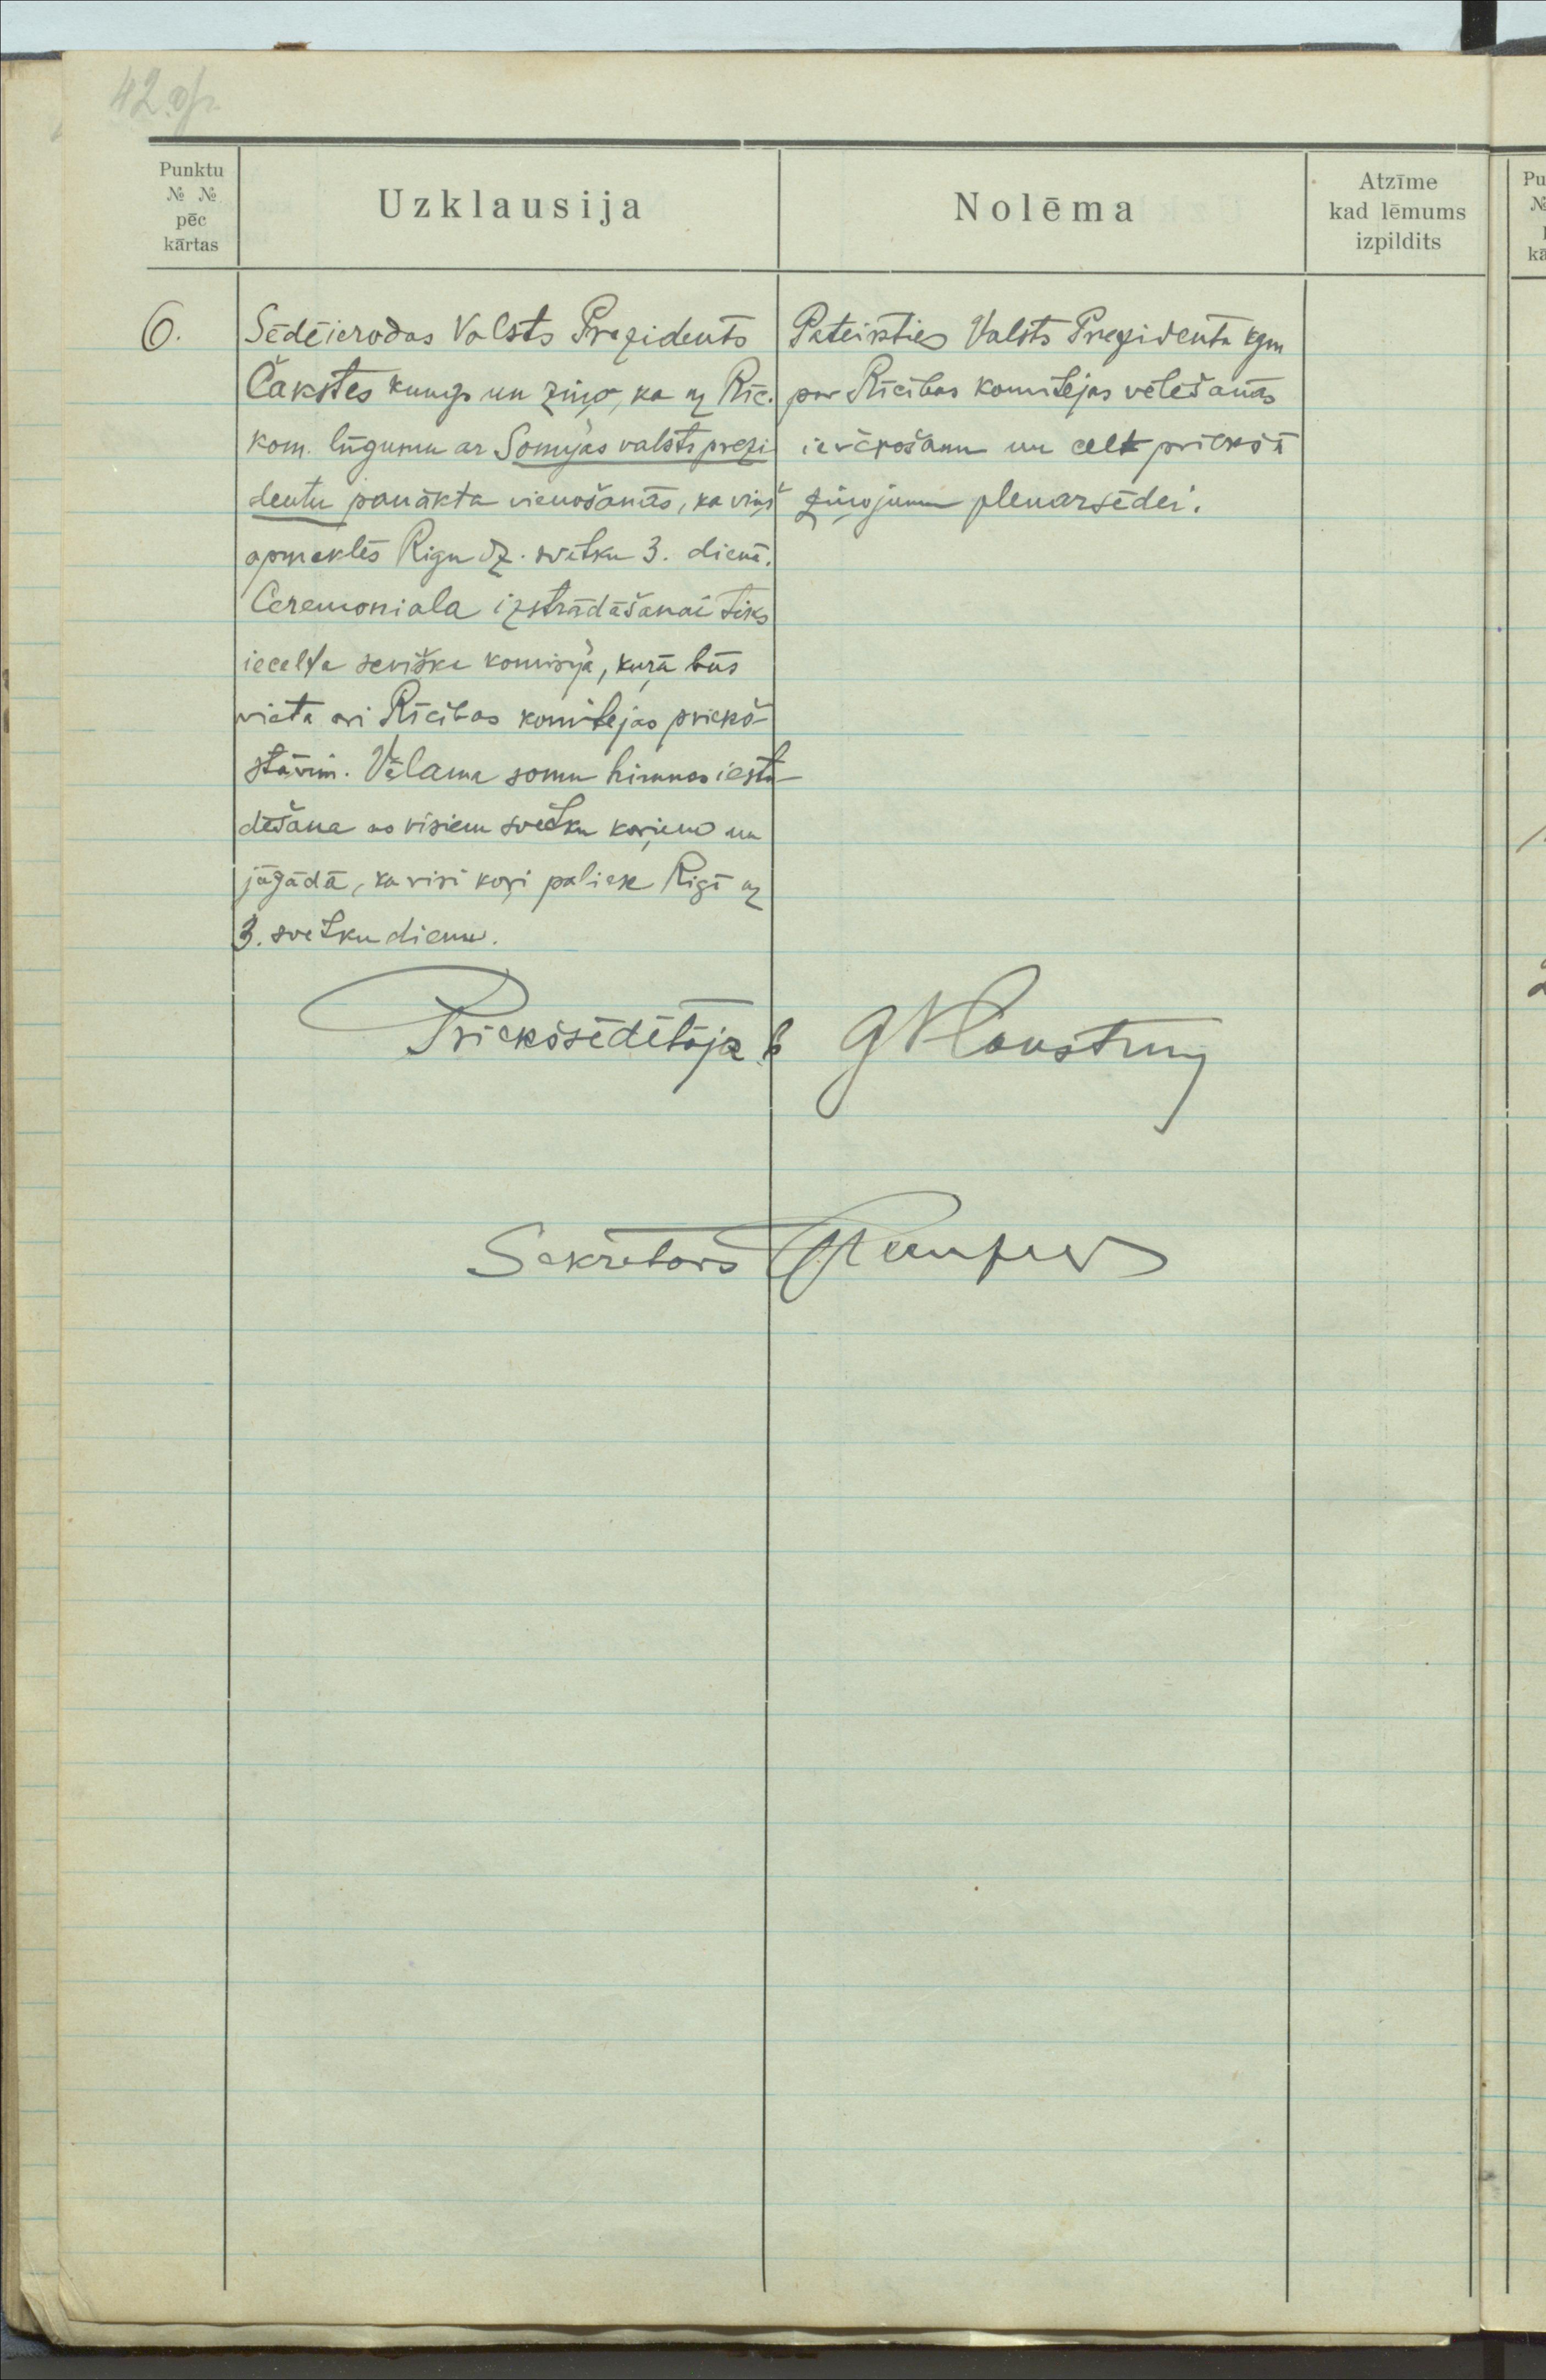 42 op.
Punktu
№ №
pēc
kārtas
Uzklausija
Nolēma
Atzīme
kad lēmums
izpildits
6.
Sēdē ierodas Valsts Prezidents
Čakstes kungs un ziņo, ka uz Rīc.
kom. lūgumu ar Somijas valsts prezi
dentu panākta vienošanās, ka viņš
apmeklēs Rigu dz. svētku 3. dienā.
Ceremoniala izstrādāšanai tiks
iecelta seviška komisija, kuŗā būs
vieta arī Rīcības komitejas priekš-
stāvim. Vēlama somu himnas iestu-
dēšana no visiem svētku koŗiem un
jāgādā, ka visi koŗi paliek Rigā uz
3. svētku dienu.
Pateikties Valsts Prezidenta kgm
par Rīcības komitejas vēlēšanās
ievērošanu un celt priekšā
ziņojumu plenarsēdei.
Priekšsēdētāja b.
Sekretars
Pu
№
kā